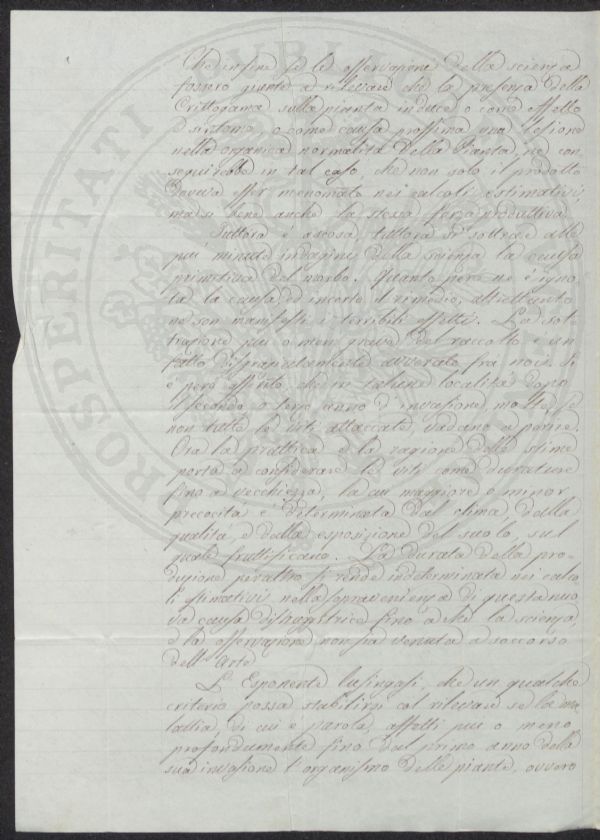 Che infine se le osservazioni della scienza
fossero giunte a rilevare che la presenza della
Crittogama sulla pianta induce o come effetto
o sintomo, o come causa prossima una lesione
nella organica normalità della Pianta, ne con
seguirebbe in tal caso, che non solo il prodotto
doveva esser menomato nei calcoli estimativi,
ma si bene anche la stessa forza produttiva.
Tuttora è ascosa, tuttora si sottrae alle
più minute indagini della scienza la causa
primitiva del morbo. Quanto però ne è igno
ta la causa ed incerto il rimedio, altrettanto
ne son manifesti i terribili effetti. La sot
trazione più o men grave del raccolto è un
fatto disgraziatamente avverato fra noi. Si
è però asserito che in talune località dopo
il secondo o terzo anno d'invasione, molte se
non tutte le viti attaccate vadano a perire.
Ora la prattica e la ragione delle stime
porta a considerare le viti come durature
fino a vecchiezza, la cui maggiore o minor
precocità è determinata dal clima dalla
qualità, e dalla esposizione del suolo, sul
quale fruttificano. La durata della pro-
duzione peraltro si rende indeterminata nei calco
li estimativi nella sopravenienza di questa nuo
va causa distruttrice fino a che la scienza,
e la osservazione non sia venuta a soccorso
dell'Arte.
L'Esponente lusingasi, che un qualche
criterio possa stabilirsi col rilevare se la ma
lattia, di cui è parola, affetti più o meno
profondamente fino dal primo anno della
sua invasione l'organismo delle piante, ovvero